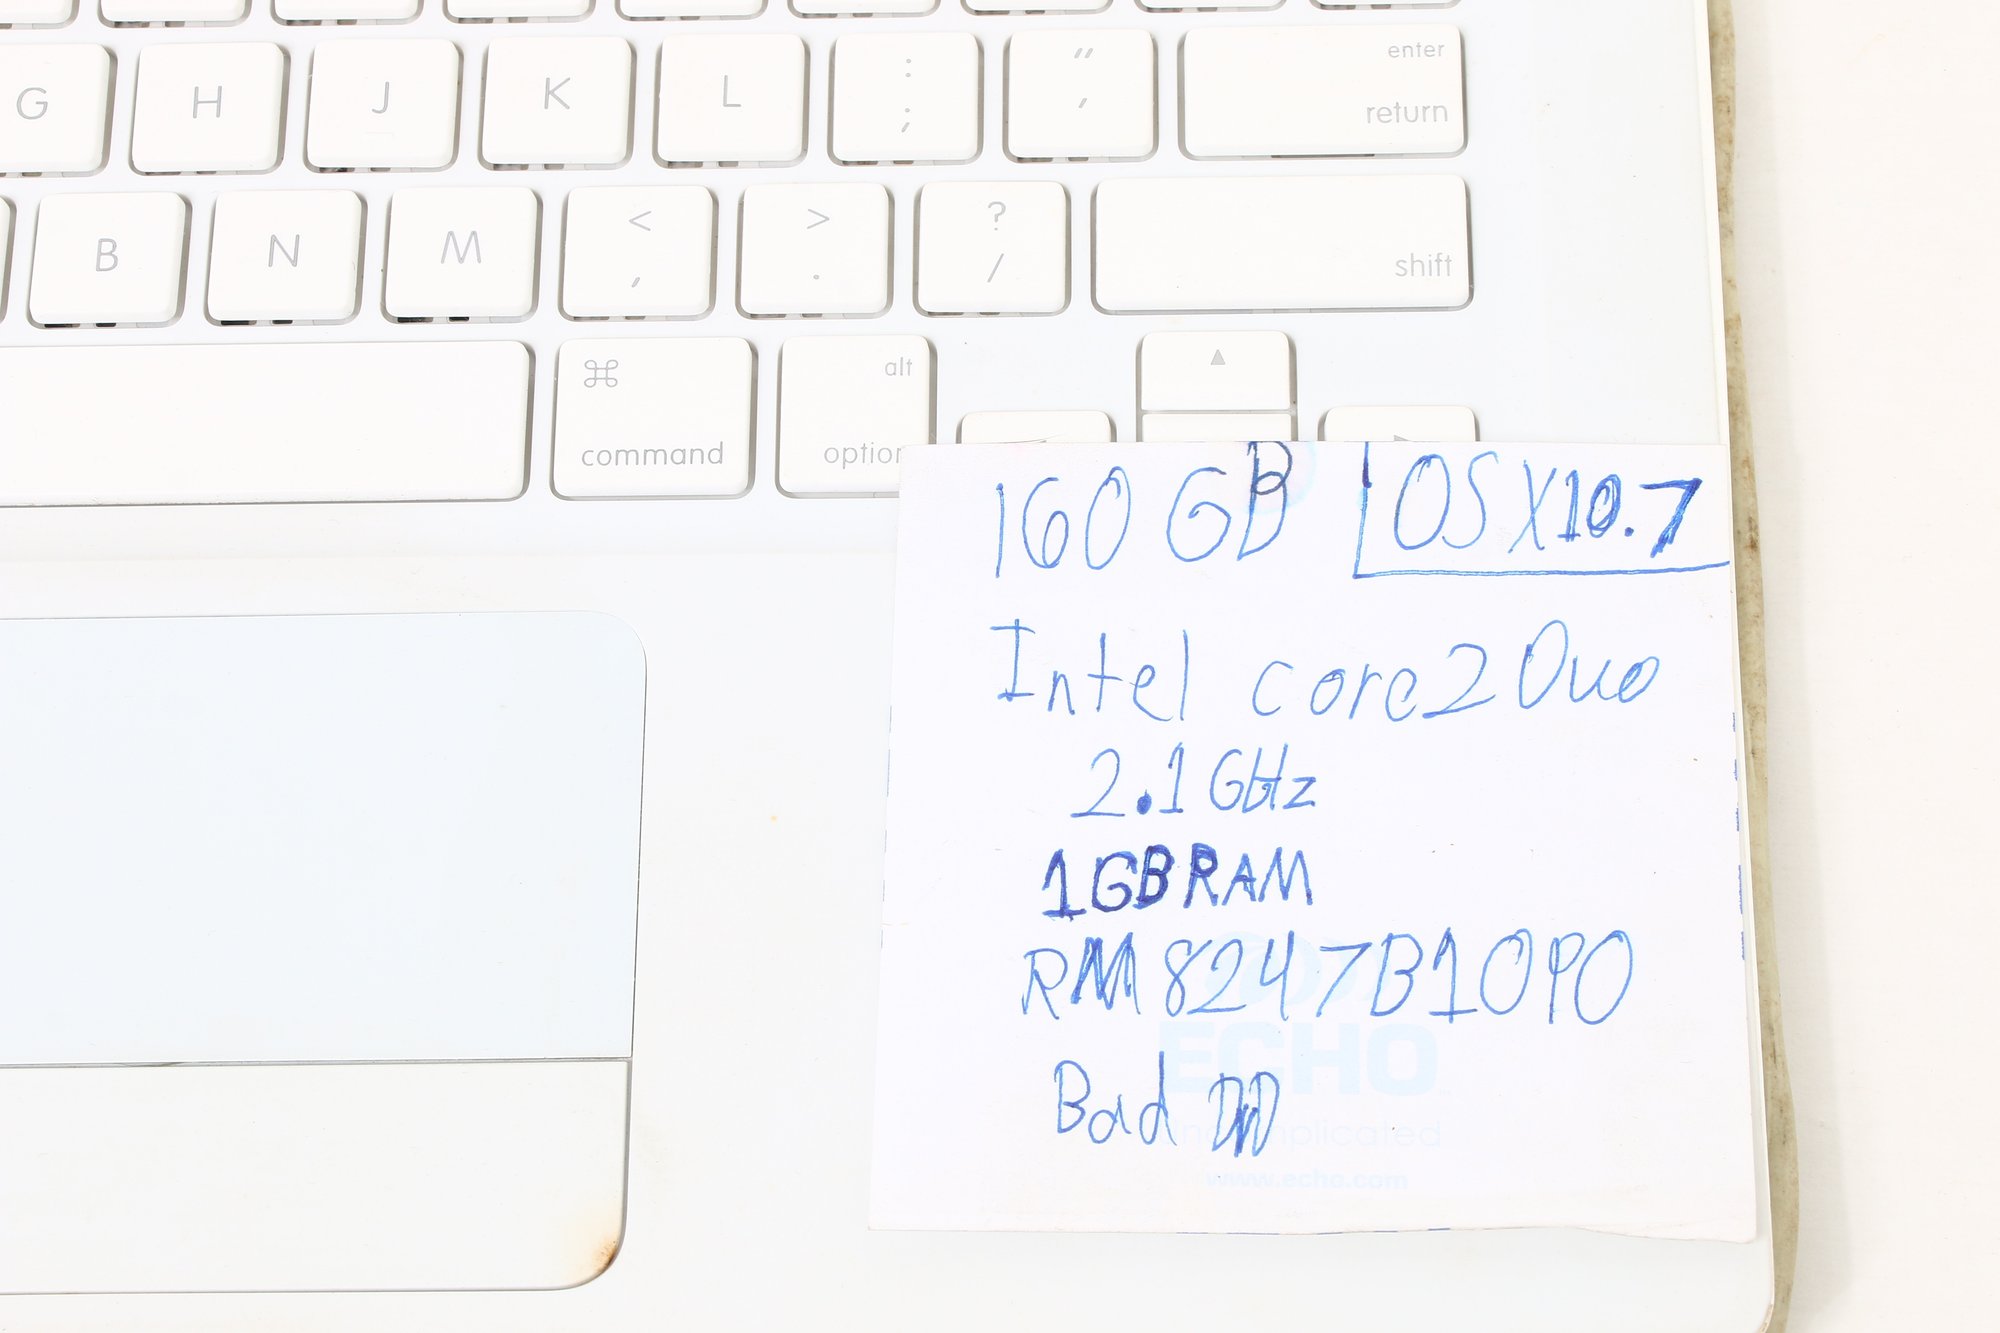 G H J K L : ; " ' enter return
B N M < , > . ? / shift
⌘ command alt option
160 GB OSX10.7
Intel core2Duo
2.1GHz
1GBRAM
RM8247B10P0
Bad DVD
ECHO
www.echo.com